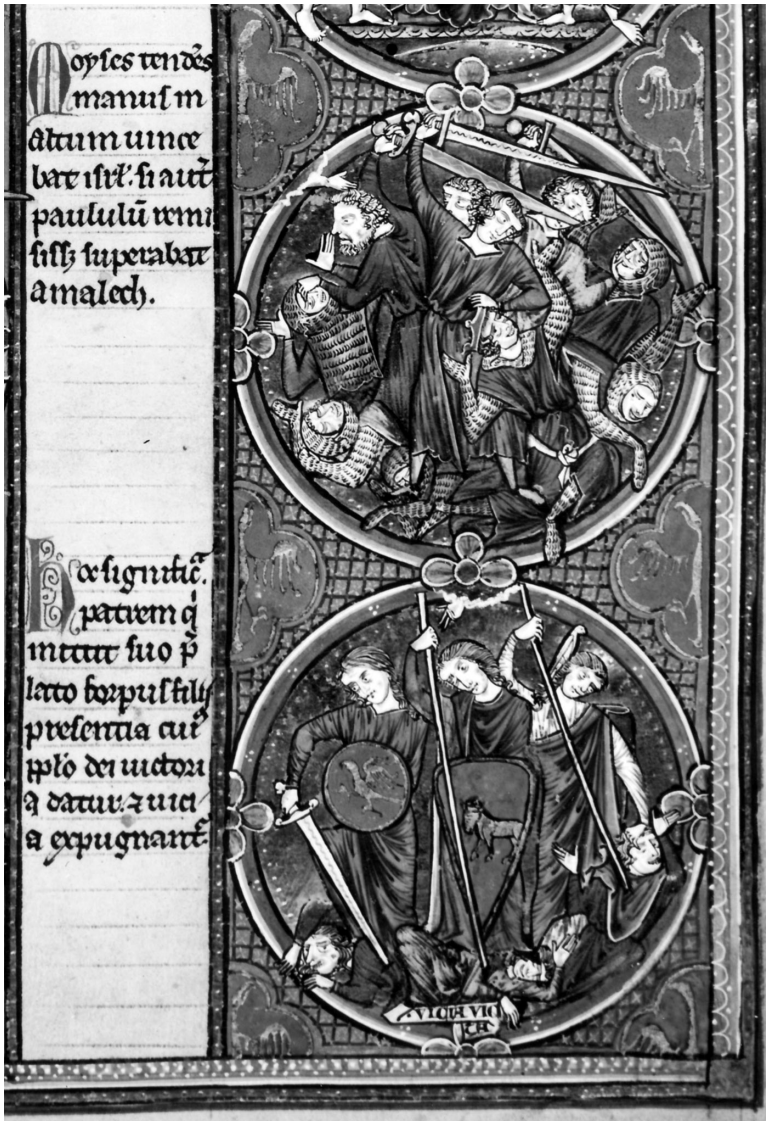 Moyses tendēs
manus in
altum uince
bat isrl'. si aut̄
paululū remi
siss; superabat
amalech.
Hoc significat̄
patrem q̇
mittit suo p̄
lato corpus filij
presentia cui⁹
pplo dei uictori
a datur. ⁊ uici
a expugnant᷑
VICIA VICI